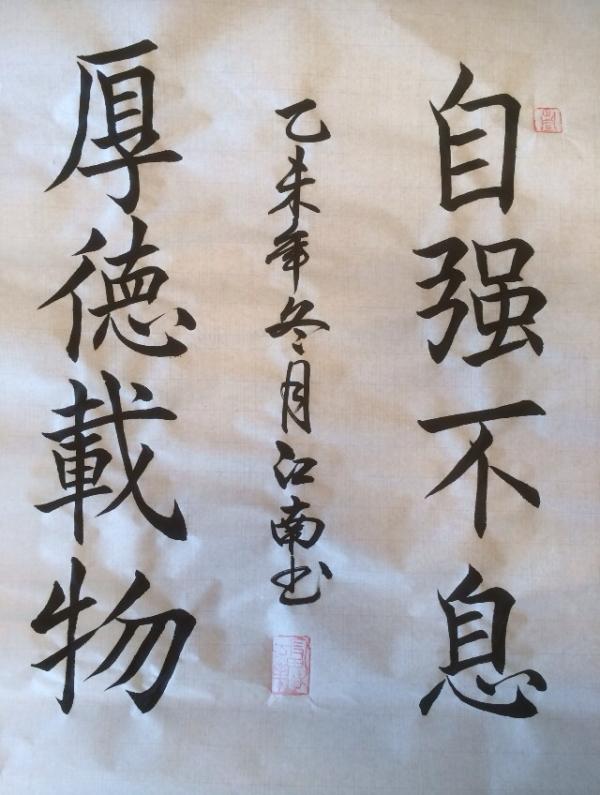 自强不息
乙未年冬月江南书
厚德載物